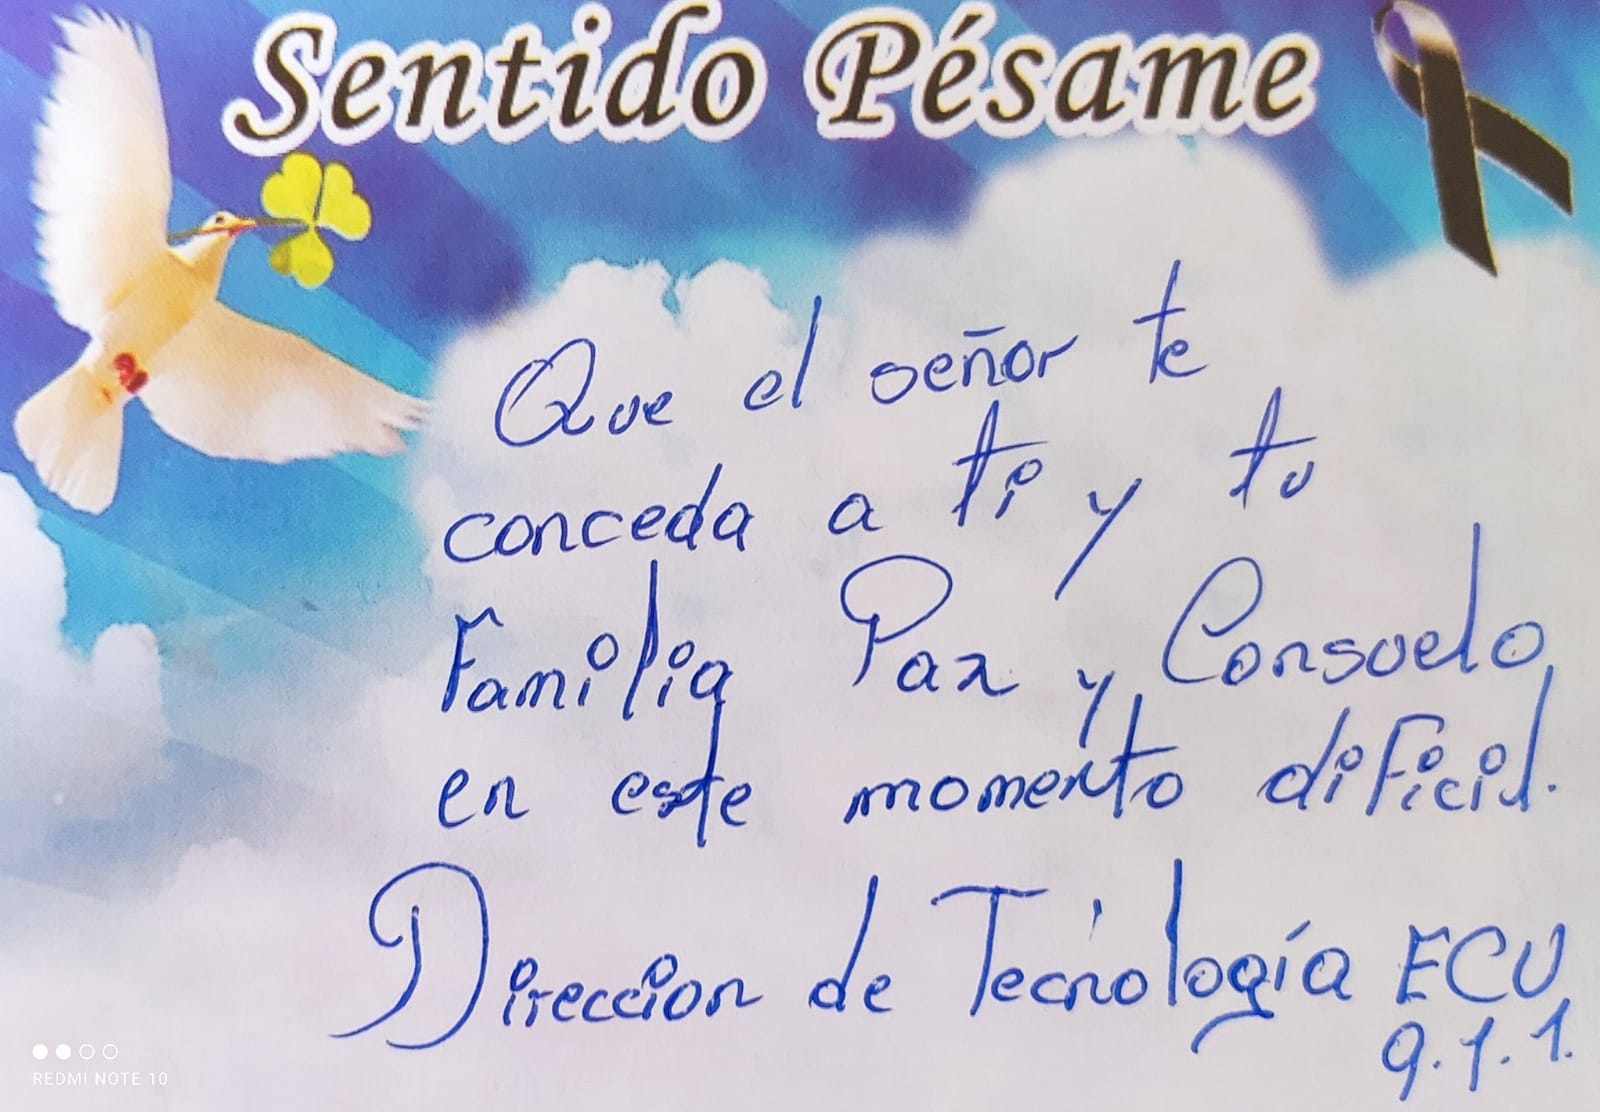 Sentido Pésame
Que el señor te
conceda a ti y tu
Familia Paz y Consuelo,
en este momento dificil.
Direccion de Tecnología ECU
9.1.1.
REDMI NOTE 10